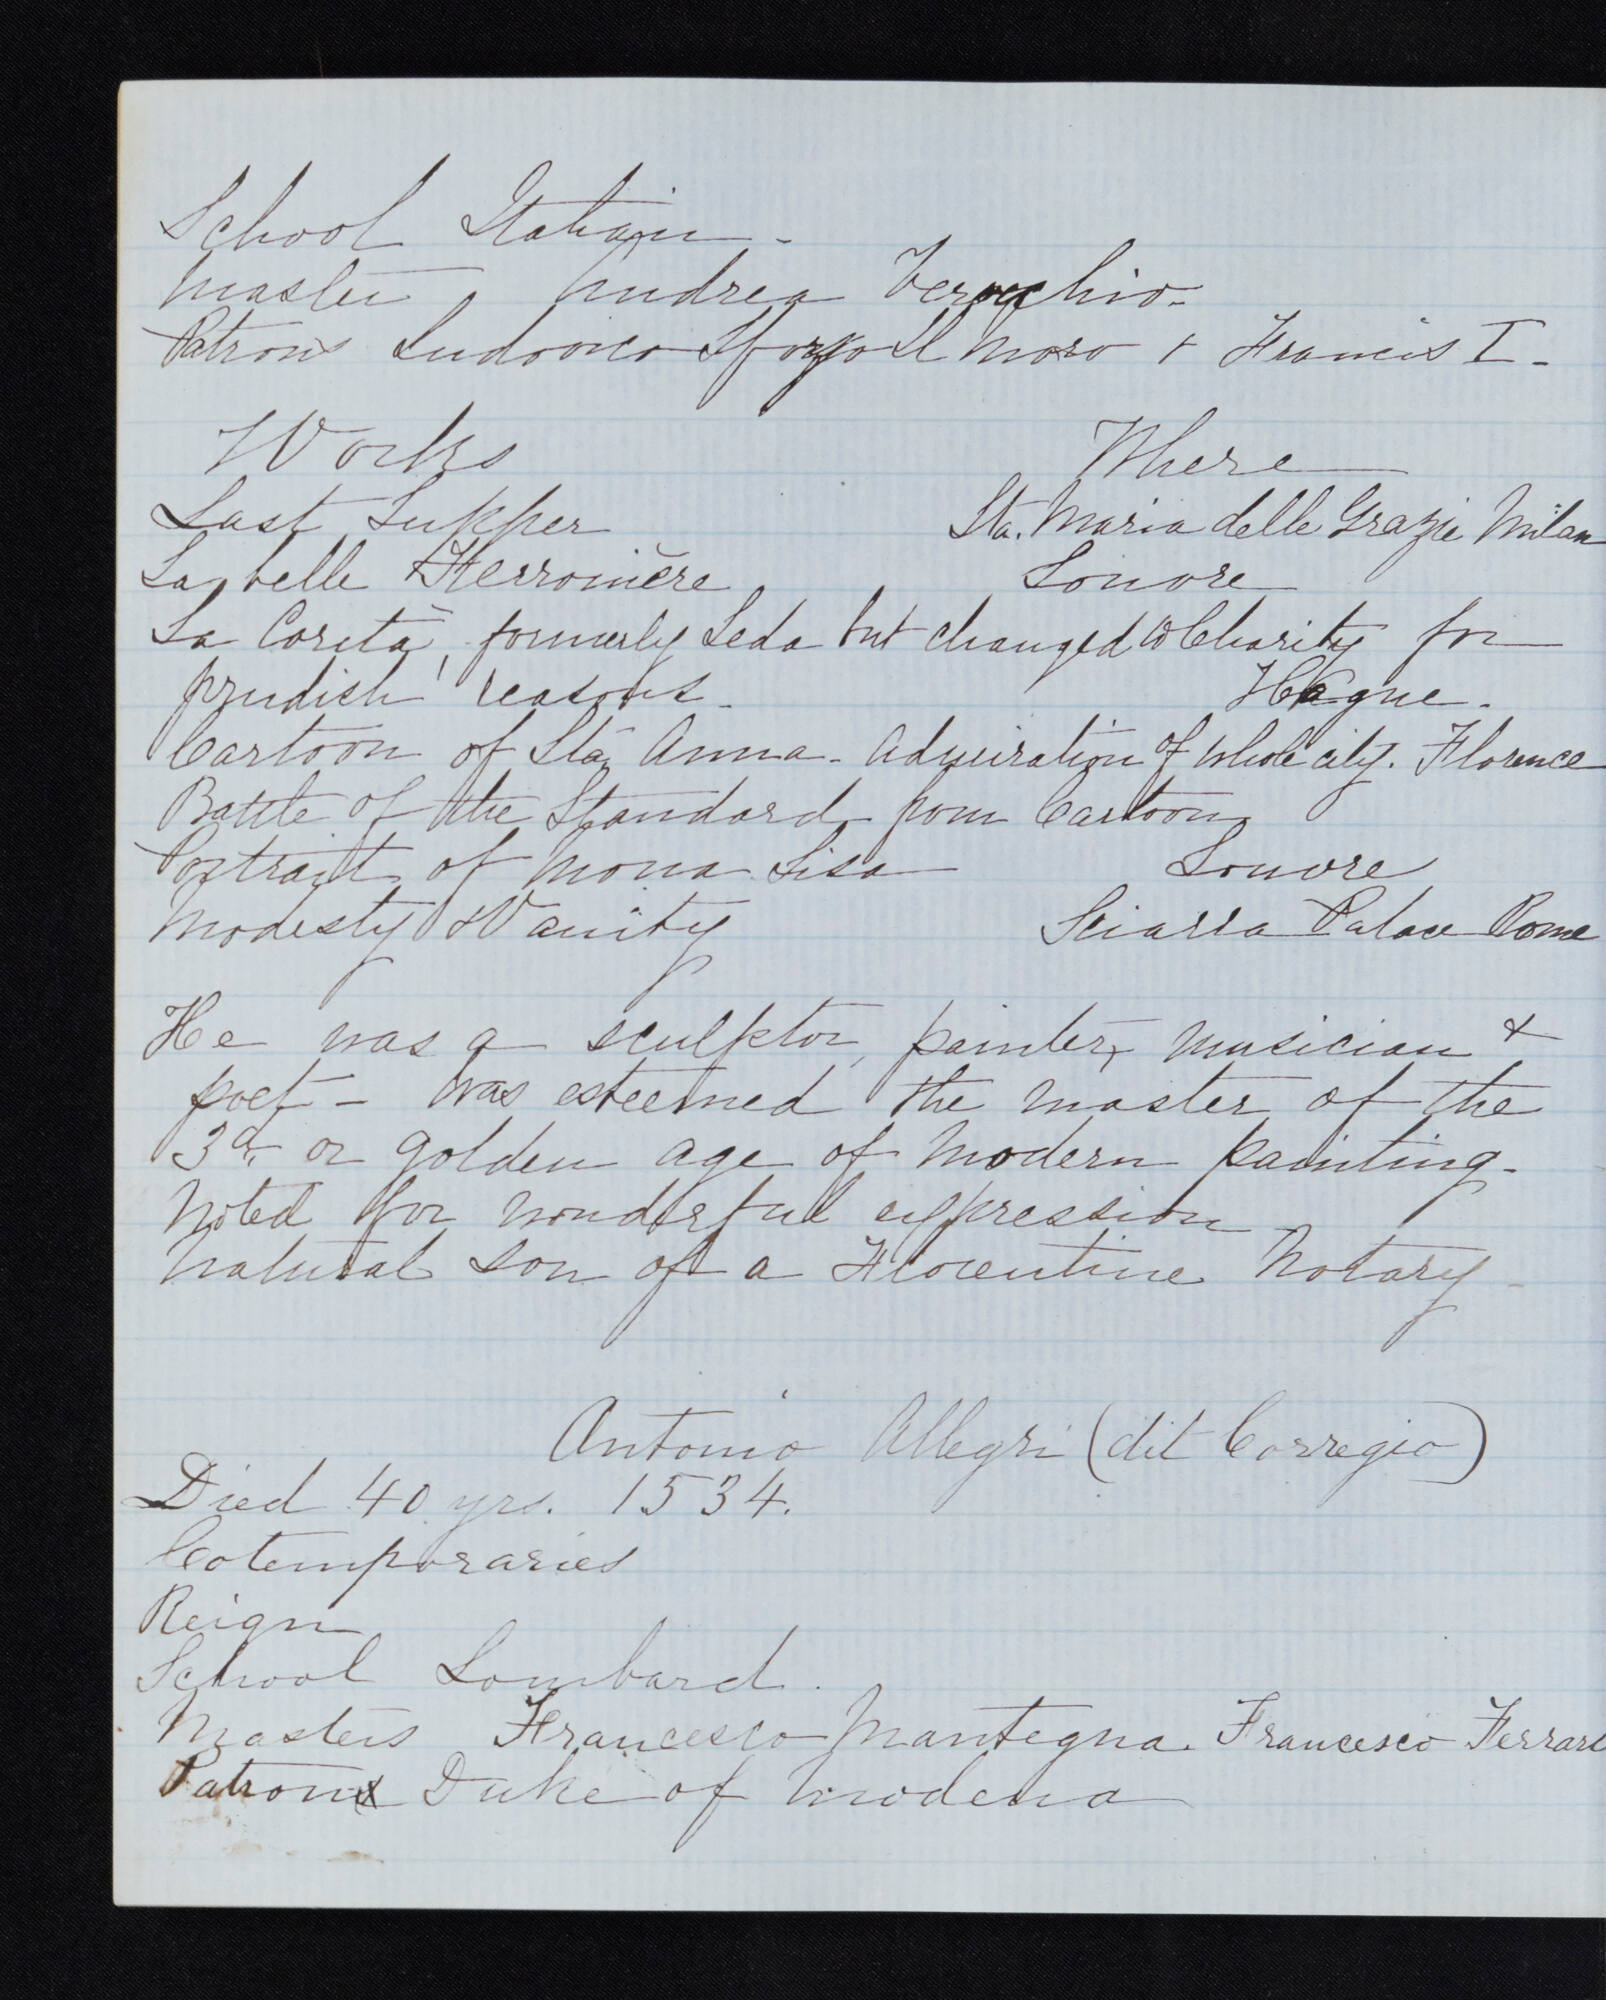 School Italian -
Master, Andrea Verocchio -
Patrons Ludovico Sforza Il Moro + Francis I -
Works Where
Last Supper Sta. Maria delle Grazie Milan
La belle Ferronière Louvre
La Carità, formerly Leda but changed to Charity for
prudish reasons - Hague -
Cartoon of Sta Anna - Admiration of whole city. Florence
Battle of the Standard from Cartoon
Portrait of Mona Lisa Louvre
Modesty & Vanity Sciarra Palace Rome
He was a sculptor, painter, musician &
poet - was esteemed the master of the
3d, or golden age of modern painting -
Noted for wonderful expression
Natural son of a Florentine Notary -
Antonio Allegri (dit Corregio)
Died 40 yrs. 1534.
Cotemporaries
Reign
School Lombard.
Masters Francesco Mantegna. Francesco Ferrari
Patron Duke of Modena